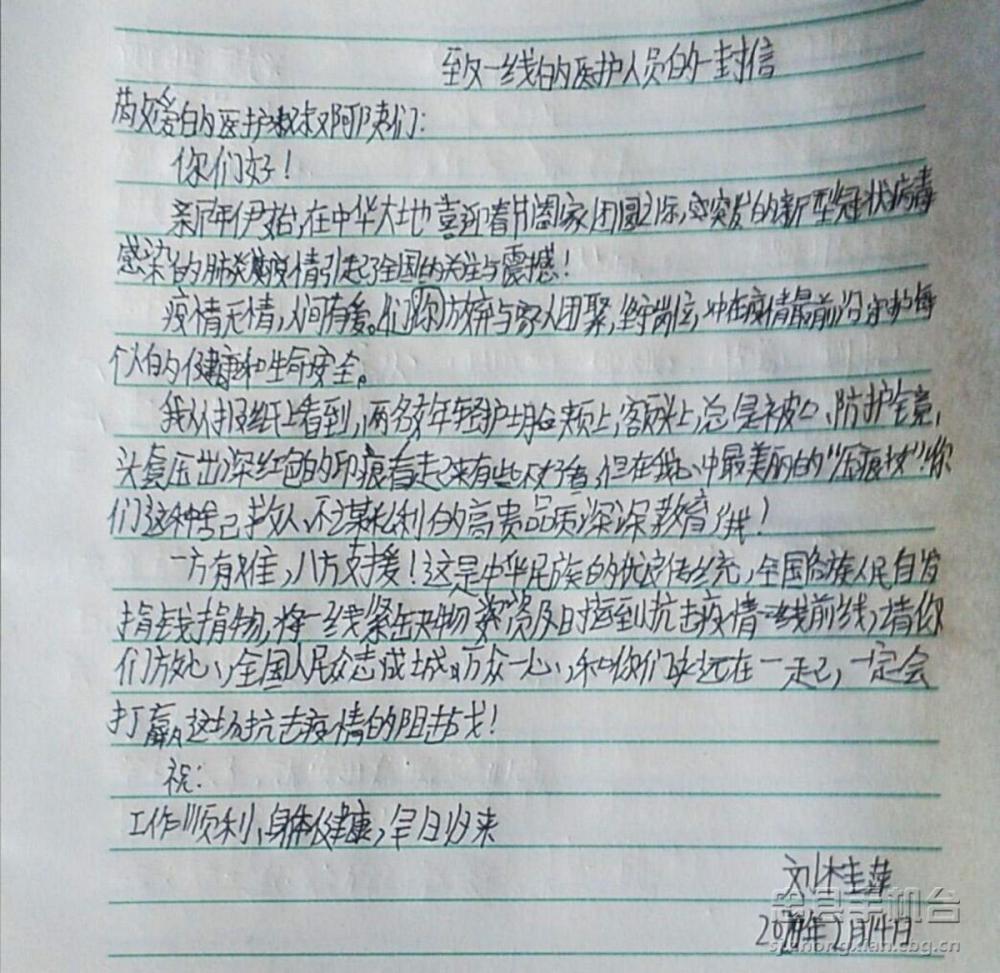 致一线的医护人员的一封信
敬爱的医护叔叔阿姨们:
你们好!
新年伊始,在中华大地喜迎春节阖家团圆之际,突发的新型冠状病毒
感染的肺炎疫情引起了全国的关注与震撼!
疫情无情,人间有爱。们你放弃与家人团聚,坚守岗位,冲在疫情最前沿守护每
个人的健康和生命安全。
我从报纸上看到,两名年轻护士脸颊上,额头上,总是被口、防护镜,
头套压出深红色的印痕看起来有些不好看,但在我心中最美丽的“压痕妆”!你
们这种舍己救人、不谋私利的高贵品质深深教育我!
一方有难,八方支援!这是中华民族的优良传统,全国各族人民自发
捐钱捐物,将一线紧缺物资及时运到抗击疫情一线前线,请你
们放心,全国人民众志成城,万众一心,和你们永远在一起,一定会
打赢这场抗击疫情的阻击战!
祝:
工作顺利,身体健康,早日归来
刘桂萍
2020年2月14日
忠县手机台
sjzhongxian.cbg.cn